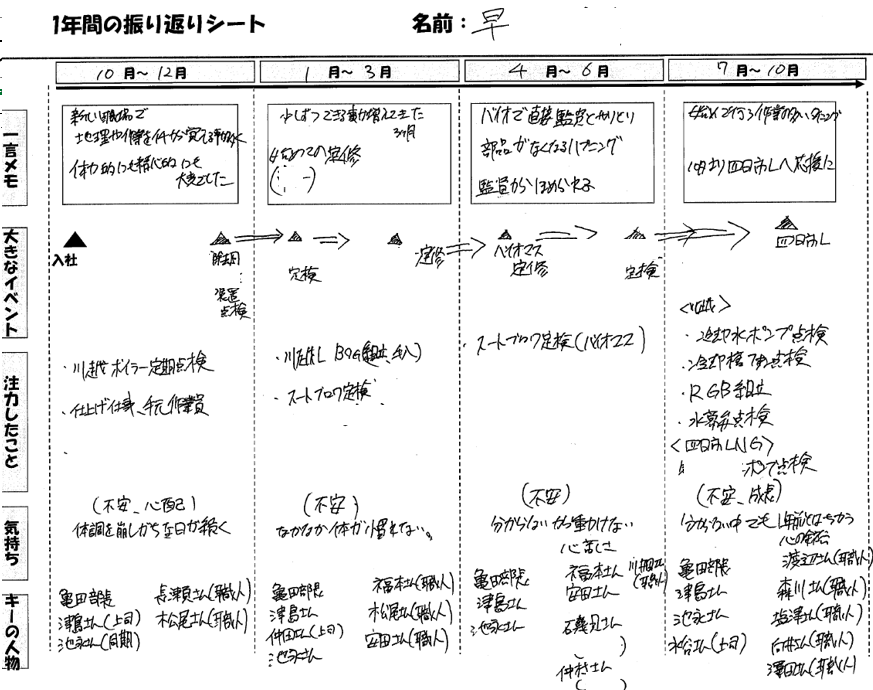 1年間の振り返りシート
名前：早
10月～12月
1月～3月
4月～6月
7月～10月
一言メモ
新しい職場で
地理や作業を1から覚える
体力的にも精神的にも
大変でした
少しずつできる事が増えてきた
3ヶ月
始めての定修
バイオで直接監督とやりとり
部品がなくなるハプニング
監督からほめられる
始めて行う作業の多いタイミング
10月より四日市Lへ応援に
大きなイベント
入社
装置
点検
定検
定修
バイオマス
定修
定検
四日市L
注力したこと
・川越ボイラー定期点検
・仕上げ仕事、手元作業員
・川越L BOG組立
・スートブロワ定検
・スートブロワ定検(バイオマス)
<川越>
・冷却水ポンプ点検
・RGB組立
<四日市LNG>
ポンプ点検
気持ち
(不安、心配)
体調を崩しがちな日が続く
(不安)
なかなか体が慣れない。
(不安)
分からないから動けない
心苦しさ
(不安、成長)
分からない中でも1年前とはちがう
キーの人物
亀田部長
津島さん(上司)
池永さん(同期)
長瀬さん(職人)
松尾さん(職人)
亀田部長
津島さん
仲田さん(上司)
池永さん
福本さん(職人)
松尾さん(職人)
安田さん(職人)
亀田部長
津島さん
池永さん
福本さん
安田さん
磯見さん
仲村さん
亀田部長
津島さん
池永さん
水谷さん(上司)
渡辺さん(職人)
森川さん(職人)
塩澤さん(職人)
向井さん(職人)
澤田さん(職人)